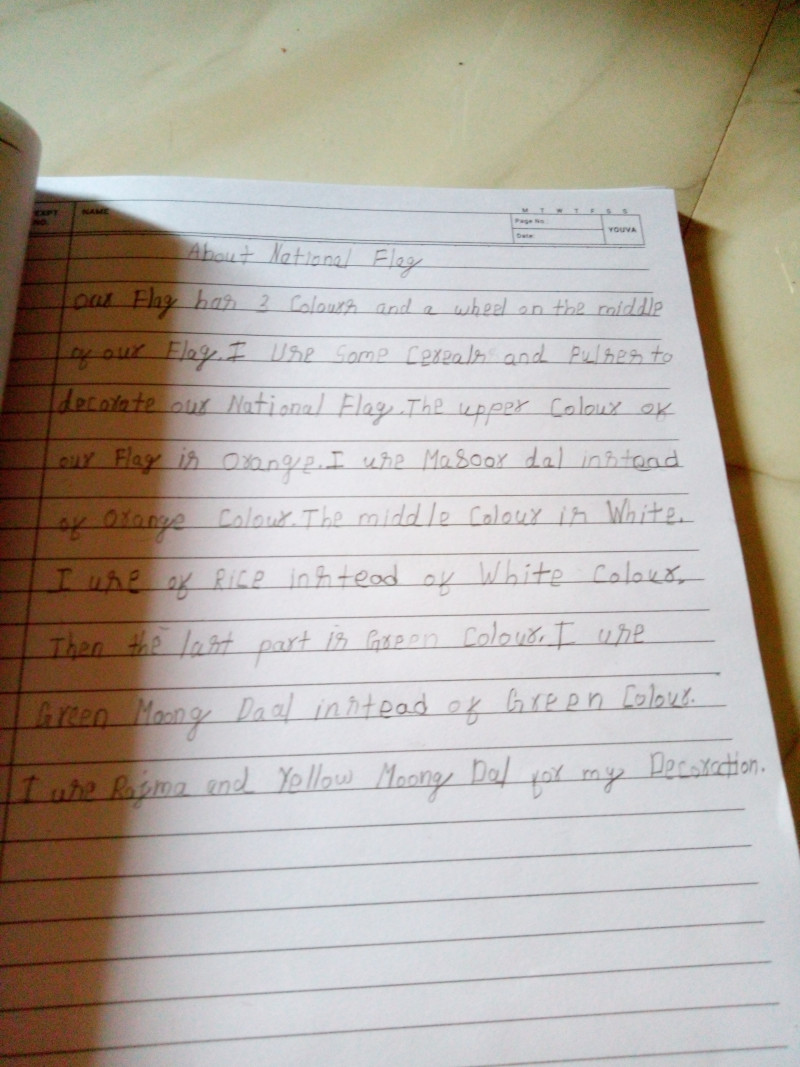 EXPT. NO.
NAME
M T W T F S S
Page No.
Date:
YOUVA
About National Flag
our Flag has 3 Colours and a wheel on the middle
of our Flag. I Use Some Cereals and Pulses to
decorate our National Flag. The upper Colour of
our Flag is Orange. I use Masoor dal instead
of Orange Colour. The middle Colour is White.
I use of Rice instead of White Colour.
Then the last part is Green Colour. I use
Green Moong Daal instead of Green Colour.
I use Rajma and Yellow Moong Dal for my Decoration.